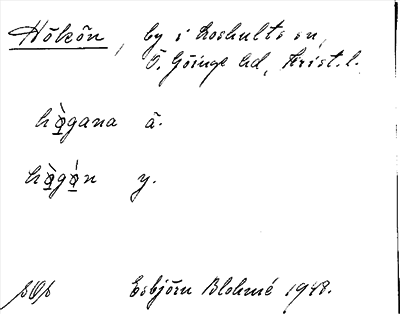 Hökön, by i Loshults sn,
Ö. Göinge hd, Krist. l.
hø̀gana ä.
hø̀gø̀n y.
Esbjörn Blohmé 1948.